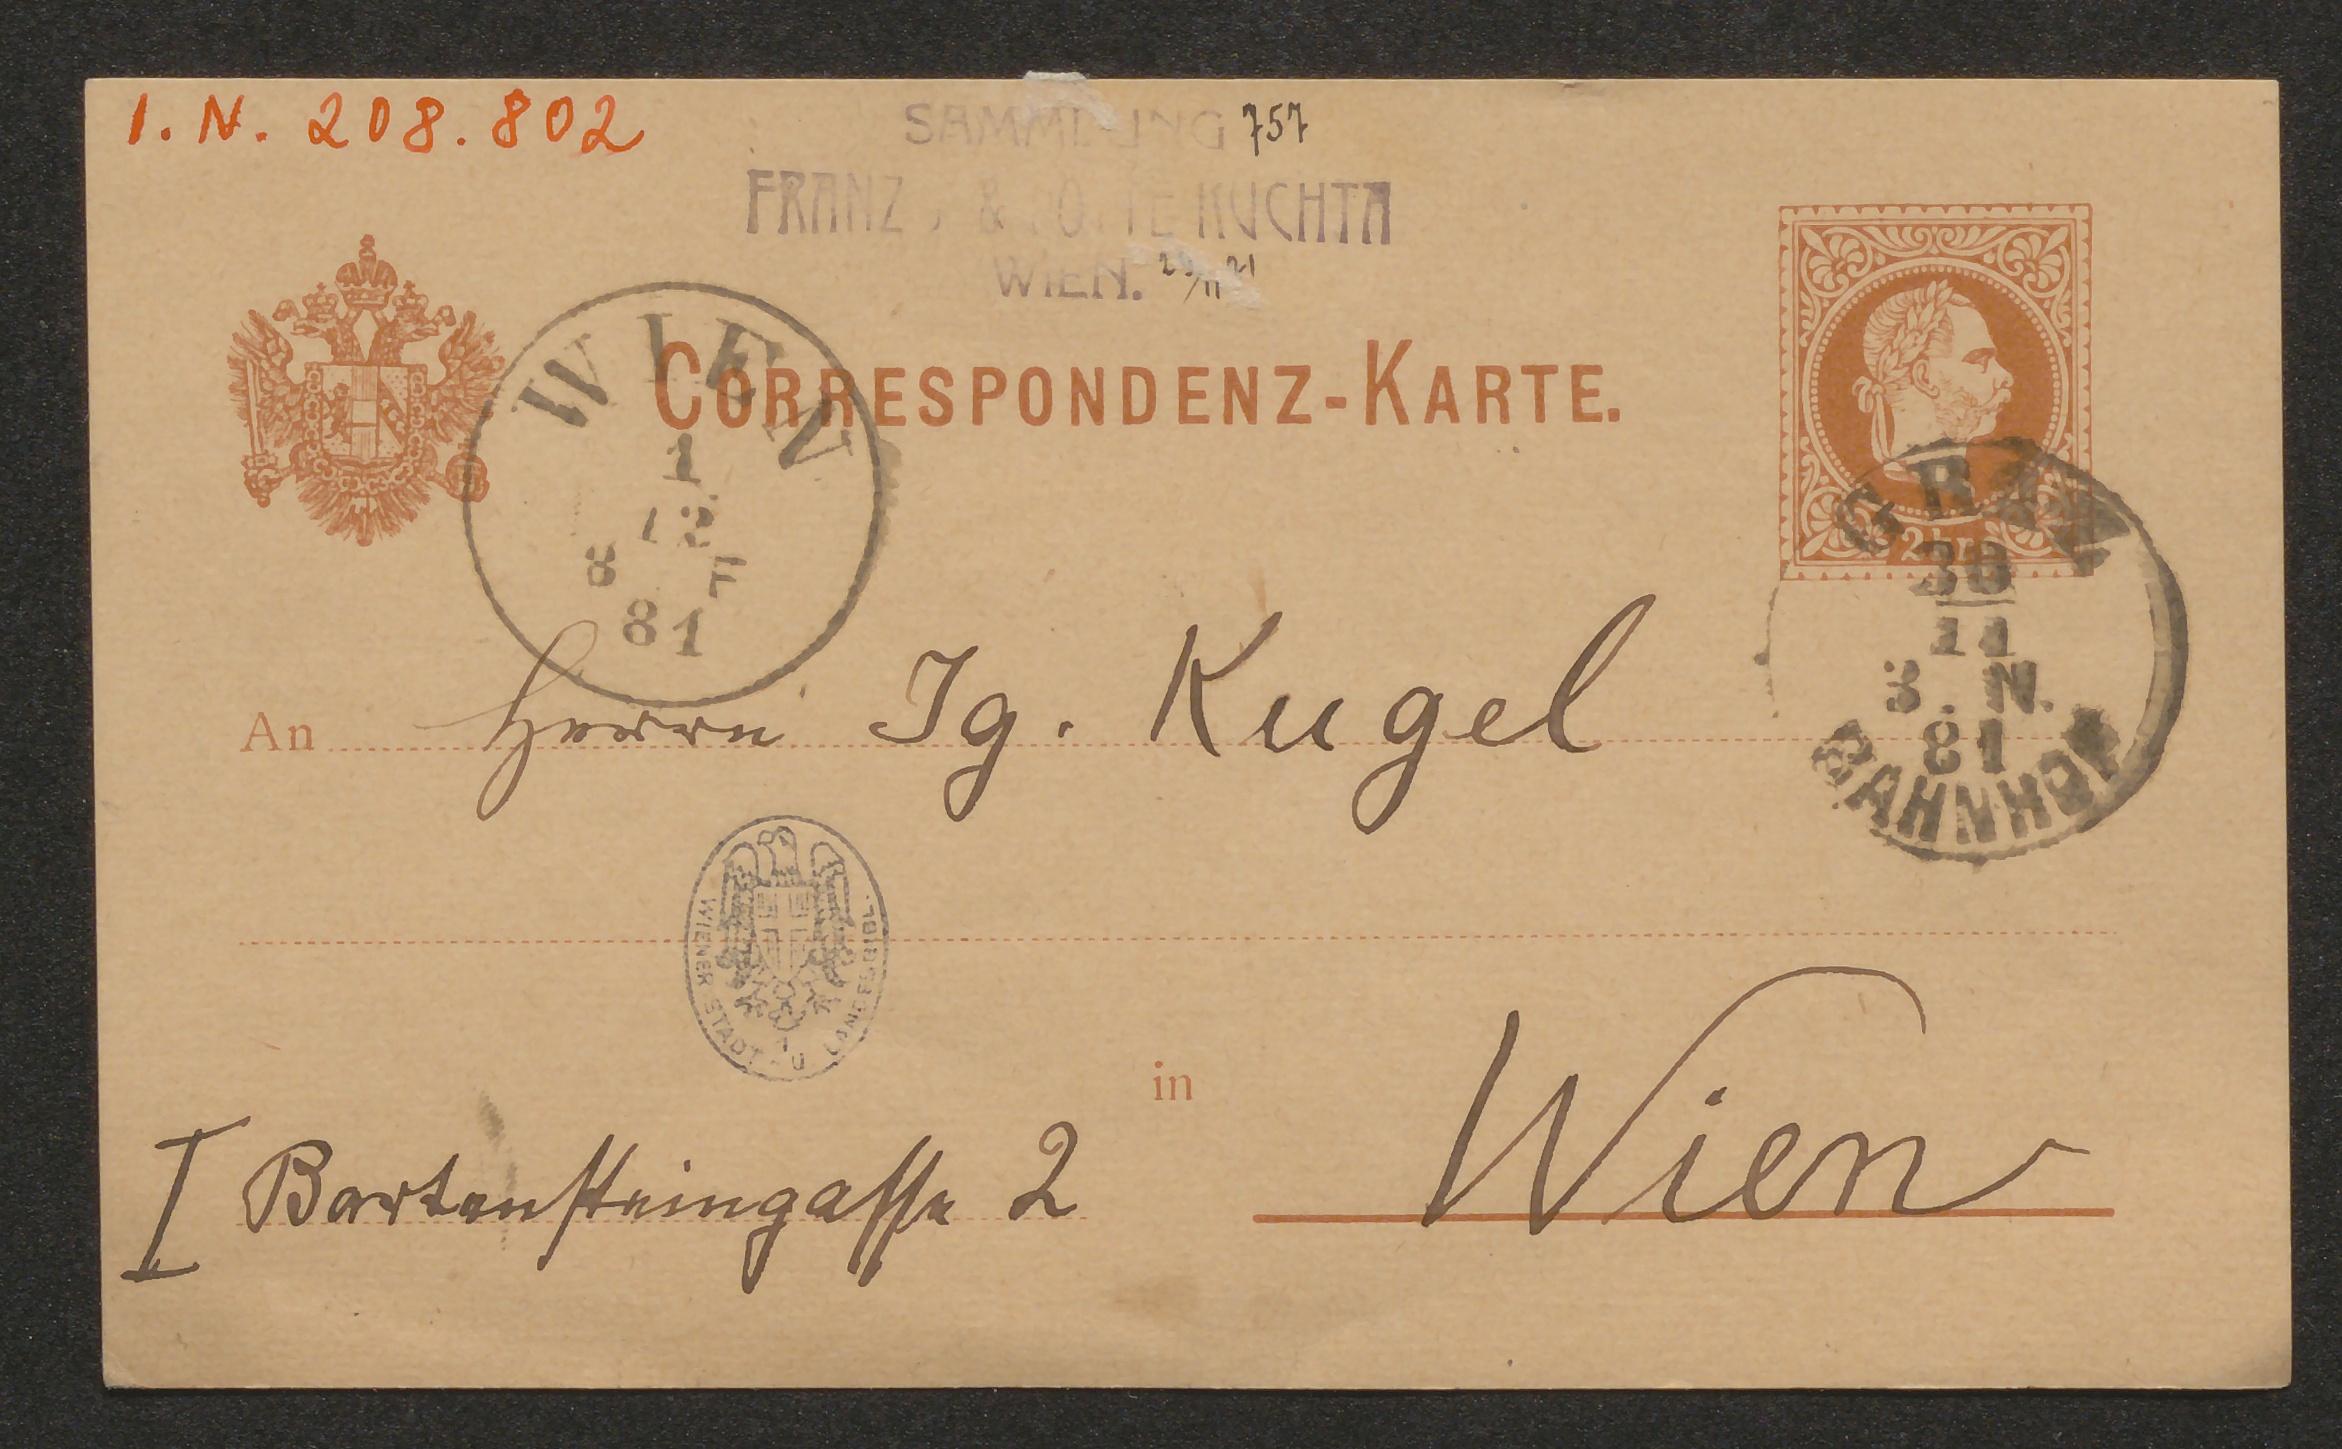 I. N. 208.802
SAMMLUNG 757
FRANZ & KUCHTA
WIEN.
CORRESPONDENZ-KARTE.
WIEN
1
12
8 F
81
2 kr
GRAZ
30
11
3. N.
81
BAHNHOF
An Herrn Ig. Kugel
WIENER STADT- U. LANDESBIBL.
in Wien
I Bartensteingasse 2